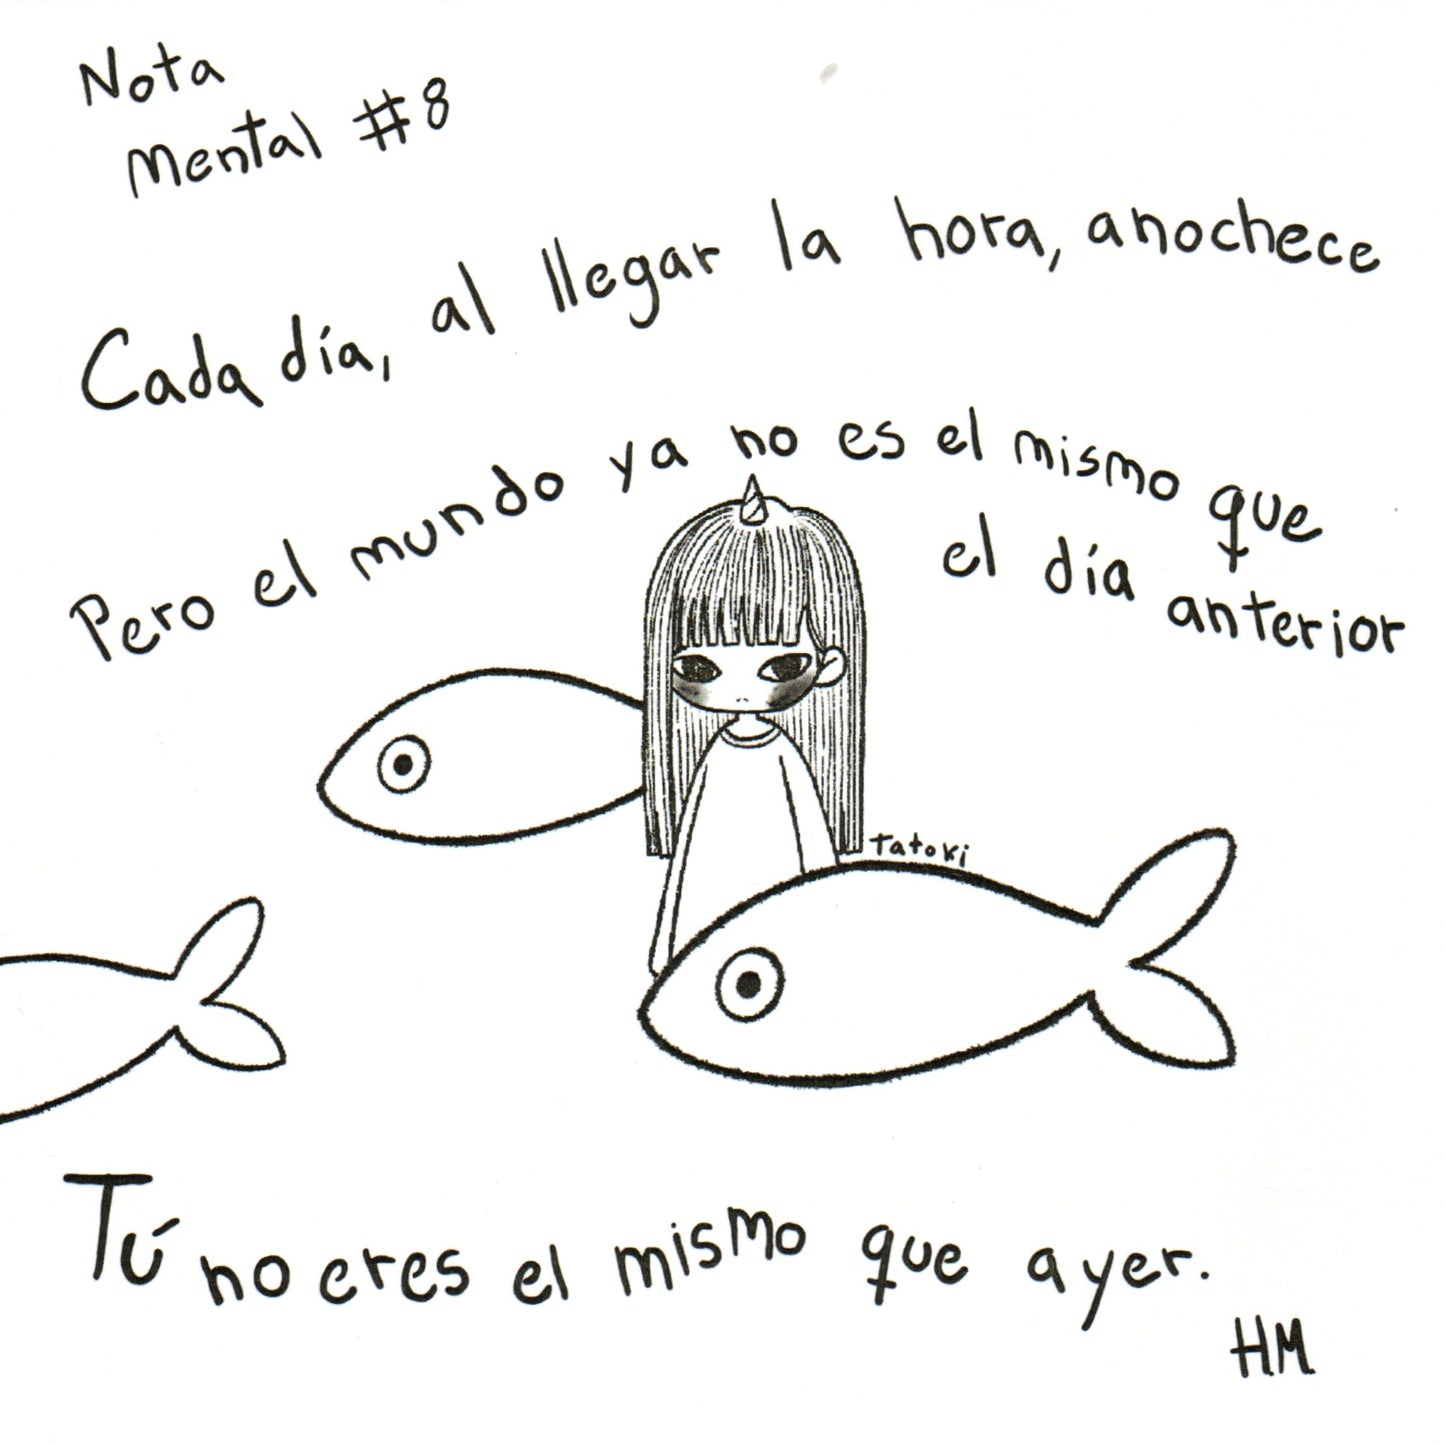 Nota
Mental #8
Cada día, al llegar la hora, anochece
Pero el mundo ya no es el mismo que
el día anterior
tatoki
Tú no eres el mismo que ayer.
HM